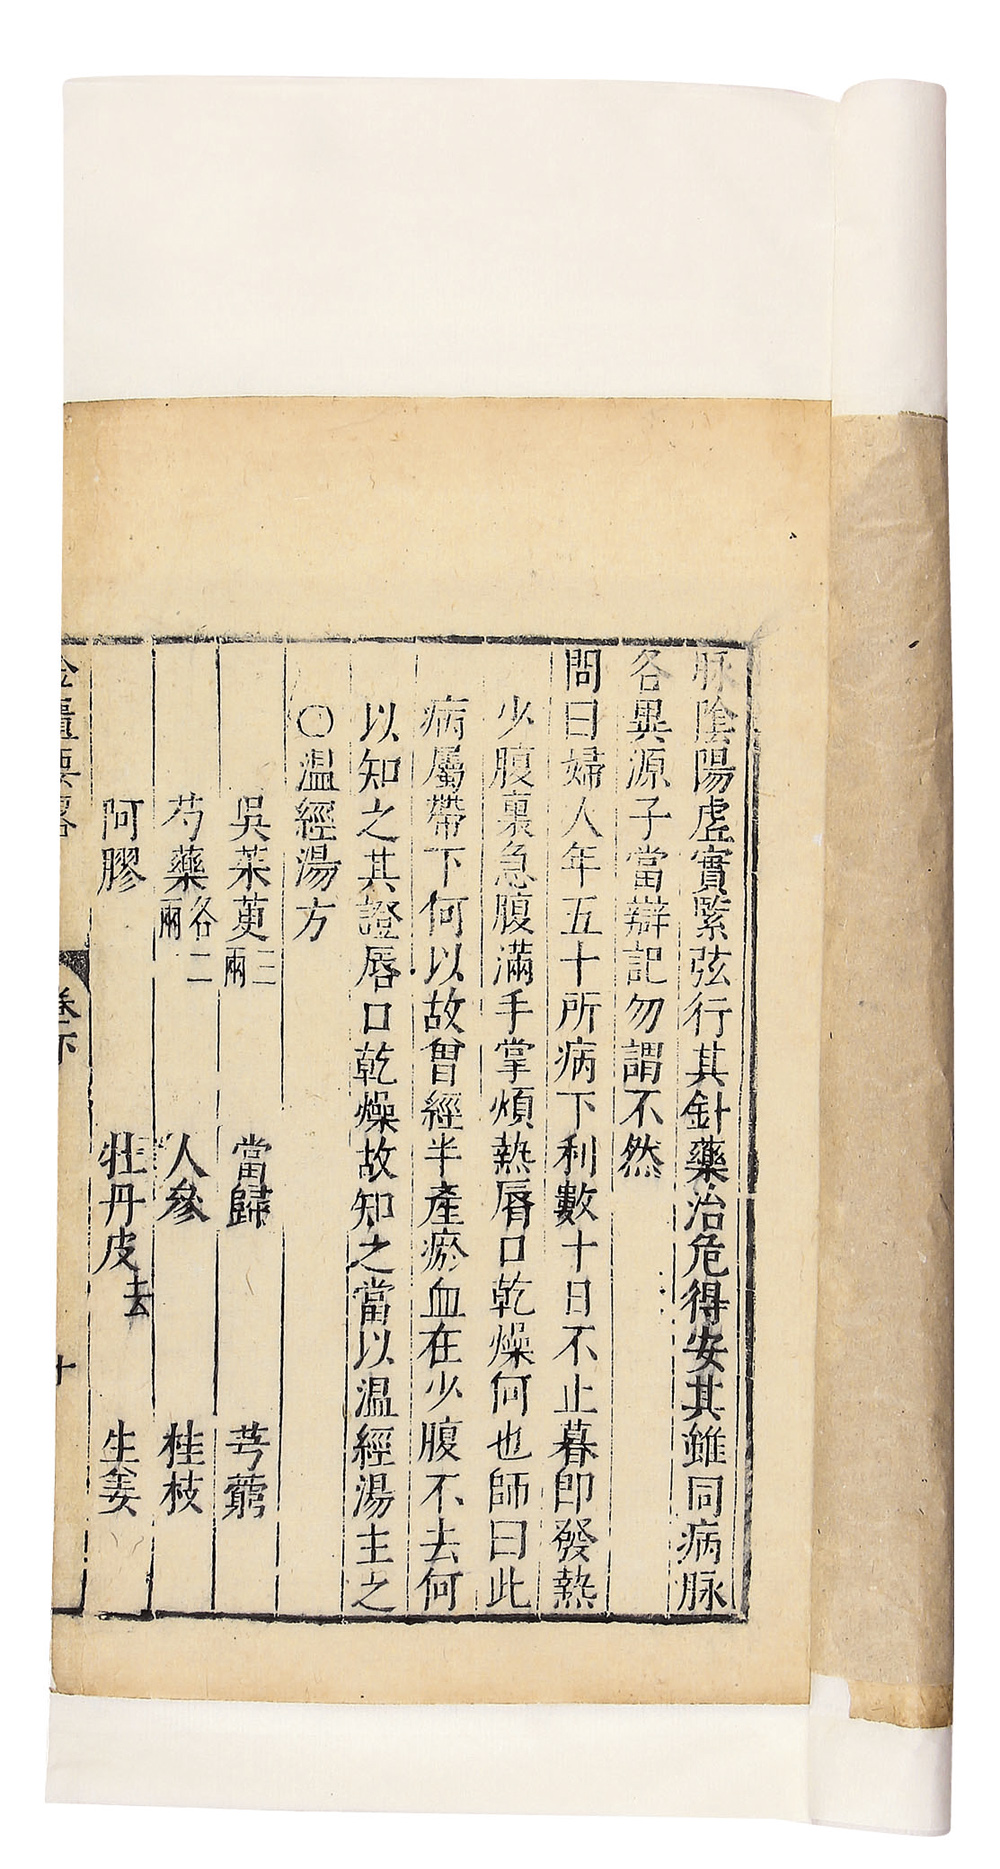 脉陰陽虛實緊弦行其針藥治危得安其雖同病脉
各異源子當辯記勿謂不然
問曰婦人年五十所病下利數十日不止暮即發熱
少腹裏急腹滿手掌煩熱唇口乾燥何也師曰此
病屬帶下何以故曾經半產瘀血在少腹不去何
以知之其證唇口乾燥故知之當以温經湯主之
〇温經湯方
吳茱萸三兩 當歸 芎藭
芍藥各二兩 人參 桂枝
阿膠 牡丹皮去 生姜
金匱要畧 卷下 十